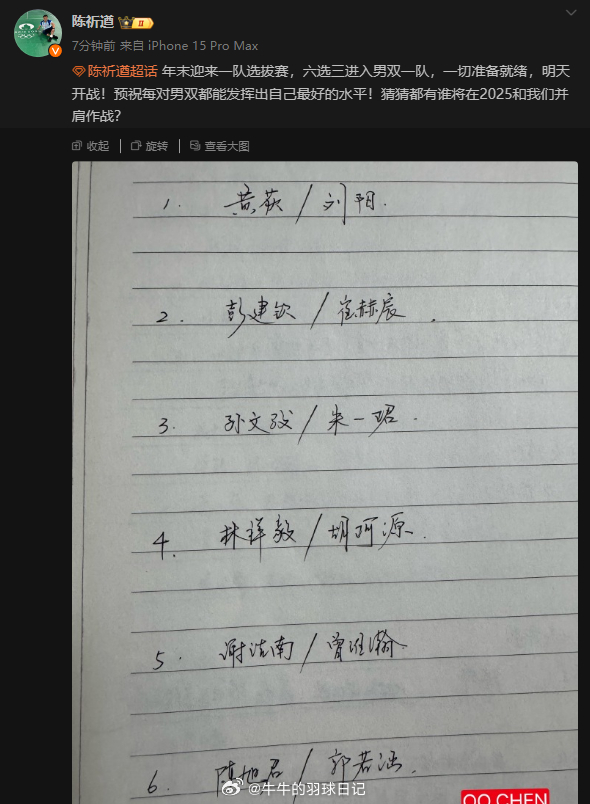 陈祈遒
7分钟前 来自 iPhone 15 Pro Max
陈祈遒超话 年末迎来一队选拔赛，六选三进入男双一队，一切准备就绪，明天
开战！预祝每对男双都能发挥出自己最好的水平！猜猜都有谁将在2025和我们并
肩作战？
收起 旋转 查看大图
1. 黄荻/刘阳.
2. 彭建钦/崔赫宸.
3. 孙文骏/朱一珺.
4. 林祥毅/胡珂源.
5. 谢浩南/曾维瀚
6. 陈旭君/郭若涵.
@牛牛的羽球日记
QQ CHEN